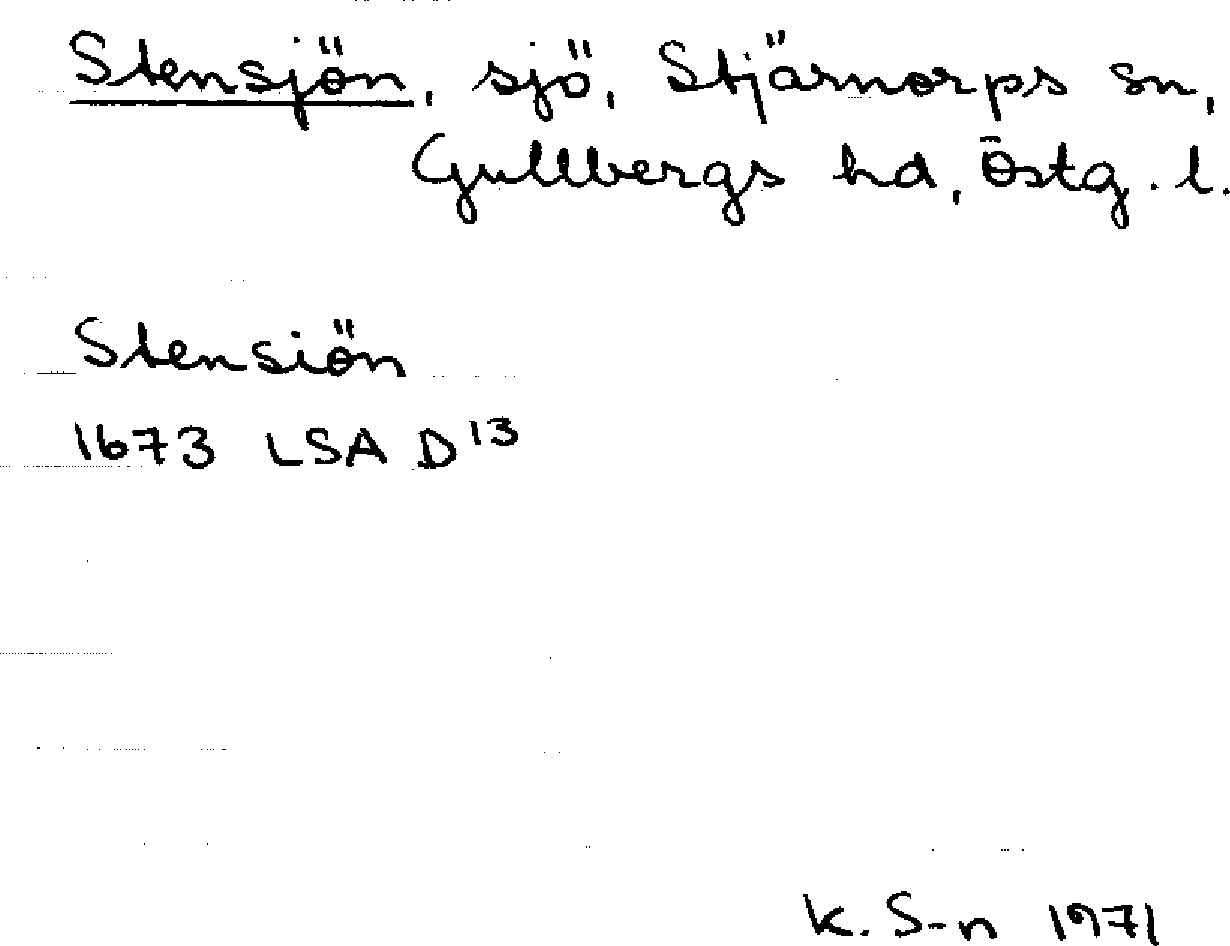 Stensjön, sjö, Stjärnorps sn,
Gullbergs hd, Östg. l.
Stensiön
1673 LSA D13
K. S-n 1971